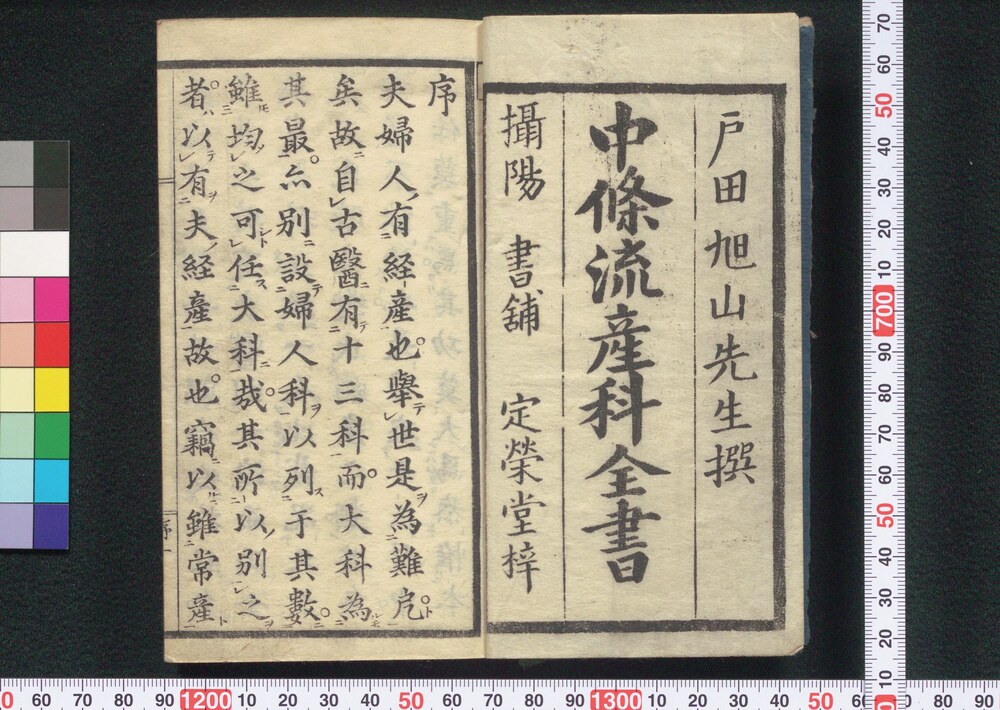 戸田旭山先生撰
中條流産科全書
攝陽 書舗 定榮堂梓
序
夫婦人有経産也擧世是為難
矣故自古醫有十三科而大科為
其最亦別設婦人科以列于其數
雖均之可任大科哉其所以別之
者以有夫経産故也竊以雖常産